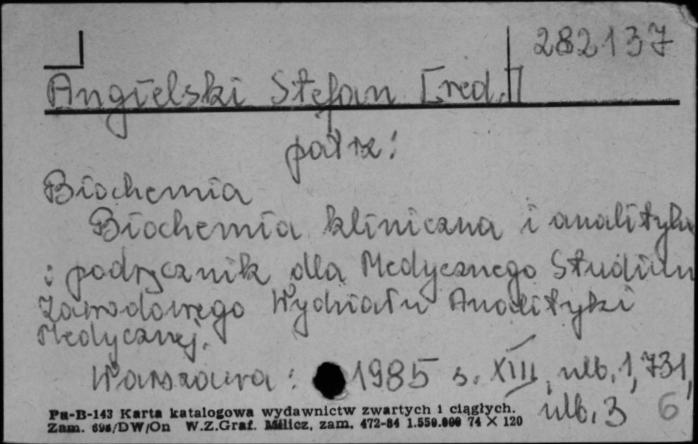 282137
Angielski Stefan [red.]
patrz:
Biochemia
Biochemia kliniczna i analityka
: podręcznik dla Medycznego Studium
Zawodowego Wydziału Analityki
Medycznej.
Warszawa : 1985 s. XIII, nlb. 1, 731,
nlb. 3 6
Pu-B-143 Karta katalogowa wydawnictw zwartych i ciągłych.
Zam. 698/DW/On W.Z.Graf. Milicz, zam. 472-84 1.550.000 74 X 120